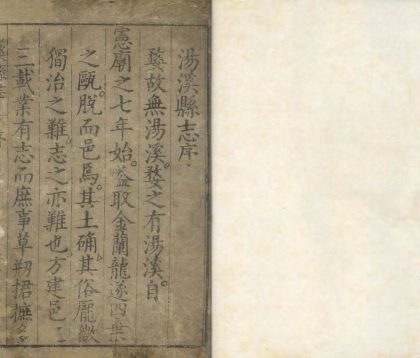 湯溪縣志序
婺故無湯溪婺之有湯溪自
憲廟之七年始益取金蘭龍遂四㮣
之甌脫而邑焉其土确其俗龐㣲
獨治之難志之亦難也方建邑
三載業有志而庶事草刱捃摭多